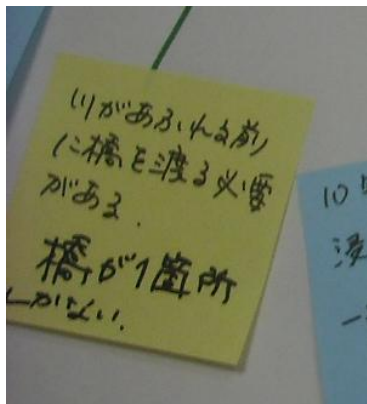 川があふれる前
に橋を渡る必要
がある.
橋が1箇所
しかない.
10
浸
一